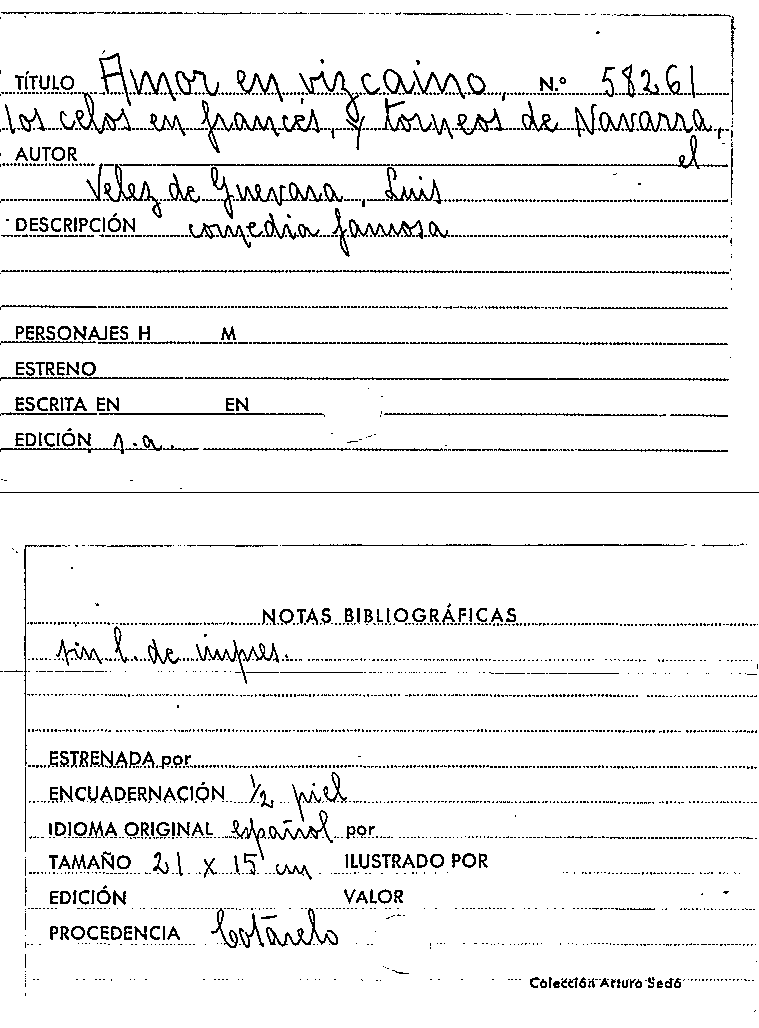 TÍTULO Amor en vizcaino, N.º 58261
los celos en francés, y torneos de Navarra,
AUTOR el
Velez de Guevara, Luis
DESCRIPCIÓN comedia famosa
PERSONAJES H M
ESTRENO
ESCRITA EN EN
EDICIÓN s.a.
NOTAS BIBLIOGRÁFICAS
sin l. de impres.
ESTRENADA por
ENCUADERNACIÓN 1/2 piel
IDIOMA ORIGINAL español por
TAMAÑO 21 x 15 cm ILUSTRADO POR
EDICIÓN VALOR
PROCEDENCIA Cotarelo
Colección Arturo Sedó